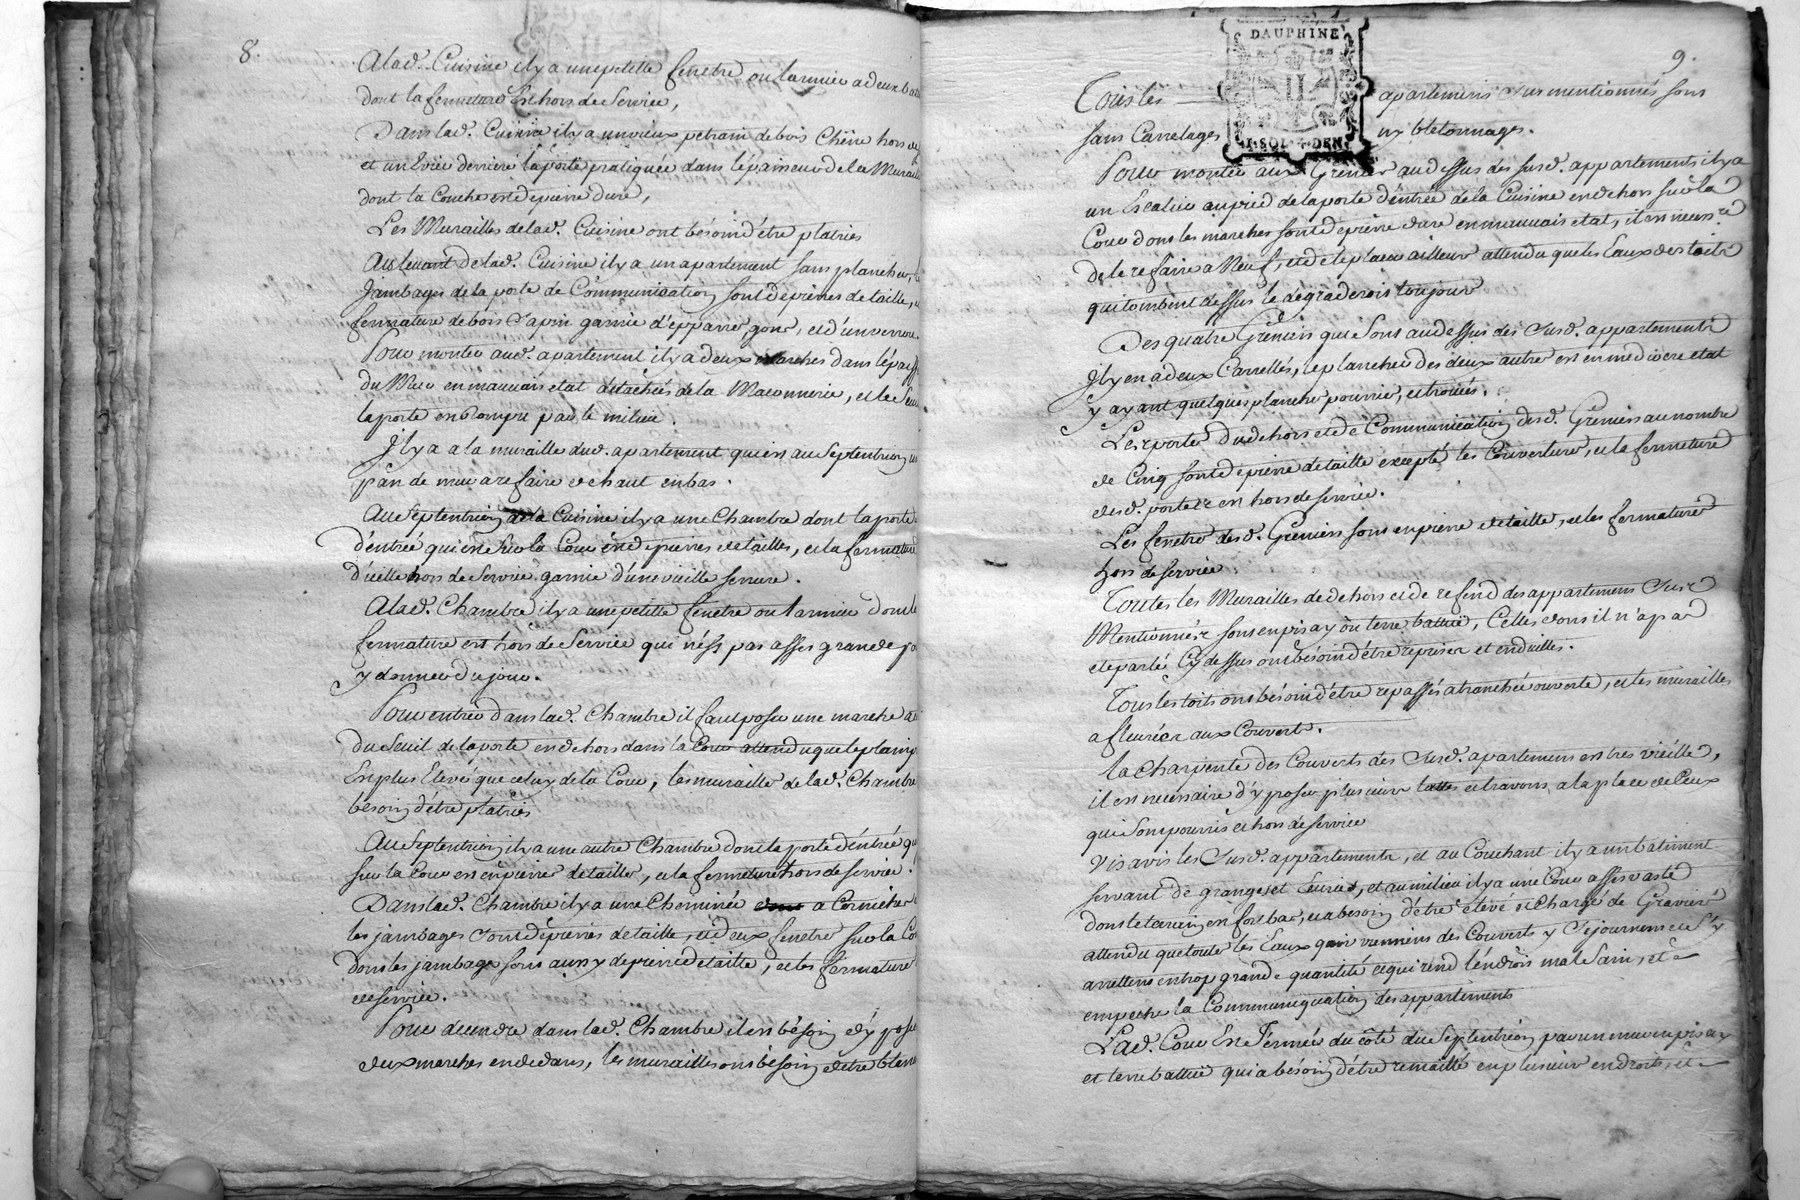 8.
A lad. Cuisine il y a une petitte fenetre ou larmier a deux
dont la fermeture Est hors de Service,
Dans lad. Cuisine il y a un vieux petrain de bois Chêne hors de
et un Evier derriere la porte pratiquée dans lépaisseur de la Murail
dont la Couche est de pierre dure,
Les Murailles de lad. Cuisine ont bésoin d'étre platriés
Au levant de lad. Cuisine il y a un apartement sans plancher,
Jambages de la porte de Communication sont de pierres de taille,
fermature de bois Sapin garnie d'epparre, gons, et d'un verrouil
Pour monter aud. apartement il y a deux marches dans lépaiss
du Mur en mauvais etat détachés de la Maconnerie, et le Seuil
la porte en Rompu par le milieu.
Il y a a la muraille dud. apartement qui est au Septentrion un
pan de mur a refaire de haut en bas.
Au Septentrion de la Cuisine il y a une Chambre dont la porte
d'entrée qui est Sur la Cour én de pierres de tailles, et la fermature
vieille hors de Service garnie d'une vieille serrure.
A lad. Chambre il y a une petitte fenetre ou larmier dont la
fermature est hors de Service qui n'ést pas assés grande po
y donner du jour.
Pour entrer dans lad. Chambre il faut poser une marche a
du Seuil de la porte en dehors dans la Cour attendu que le plainp
Est plus Elevé que celuy de la Cour, les muraille de lad. Chambre
besoin d'étre platriés
Au Septentrion il y a une autre Chambre dont la porte d'éntrée qu
sur la Cour est en pierre de tailles, et la fermeture hors de servïce.
Dans lad. Chambre il y a une Cheminée a Corniche
les jambages Sont de pierres de taille, et deux fenetres sur la Co
dont les jambage sont aussy de pierre de taille, et les fermature
de servïce.
Pour decendre dans lad. Chambre il est bésoin d'y poser
deux marches en dedans, les murailles ont bésoin d'etre blan
9.
DAUPHINE
Tous les apartements Sus mentionnés sont
sans Carrelages ny bletonnages.
1. SOL 4. DEN
Pour monter aux Grenier au dessus des susd. appartements il y a
un Escalier au pied de la porte d'éntrée de la Cuisine en dehors sur la
Cour dont les marches sont de pierre dure en mauvais etat, il est necess.re
de le refaire a Neuf, et de le placer ailleur attendu que les Eaux des toits
qui tombent dessus le dégraderois toujour
Des quatre Greniers qui Sont au dessus des Susd. appartements
Il y en a deux Carrellés, le plancher des deux autre est en mediocre etat
y ayant quelques planches pourries, et troués.
Les portes du dehors et de Communication desd. Greniers au nombre
de Cinq sont de pierre de taille excepté les Couverture, et la fermeture
desd. portes est hors de service.
Les fenetre desd. Greniers sont en pierre de taille, et les fermatures
hors de servïce.
Toutes les Murailles de dehors et de refend des appartemens Sus
Mentionnées sont en pisay ou terre battüe, Celles dont il n'a pas
eté parlé Cy dessus ont bésoin d'étre reprises et enduites.
Tous les toits ont bésoin d'être repassés a tranchée ouverte, et les murailles
afleurées aux Couvert.
La Charpente des Couverts des Susd. apartemens est tres vieille,
il est necessaire d'y poser plusieurs lattes et travons a la place de Ceux
qui Sont pourris et hors de service
Vis avis les Susd. appartements, et au Couchant il y a un batiment
servant de granges, et Ecuries, et au milieu il y a une Cour assés vaste
dont le terein en fort bas, et a besoin d'étre élevé et Chargé de Gravier
attendu que toute les Eaux qui viennens des Couverts y Séjournens et S'y
arrettens en trop grande quantité ce qui rend l'éndroit mal Sain, et
empeche la Communicquation des appartements
Lad. Cour Est Fermée du côté du Septentrion par un mur en pisay
et terre battüe qui a bésoin d'étre remaillé en plusieur endroits, et